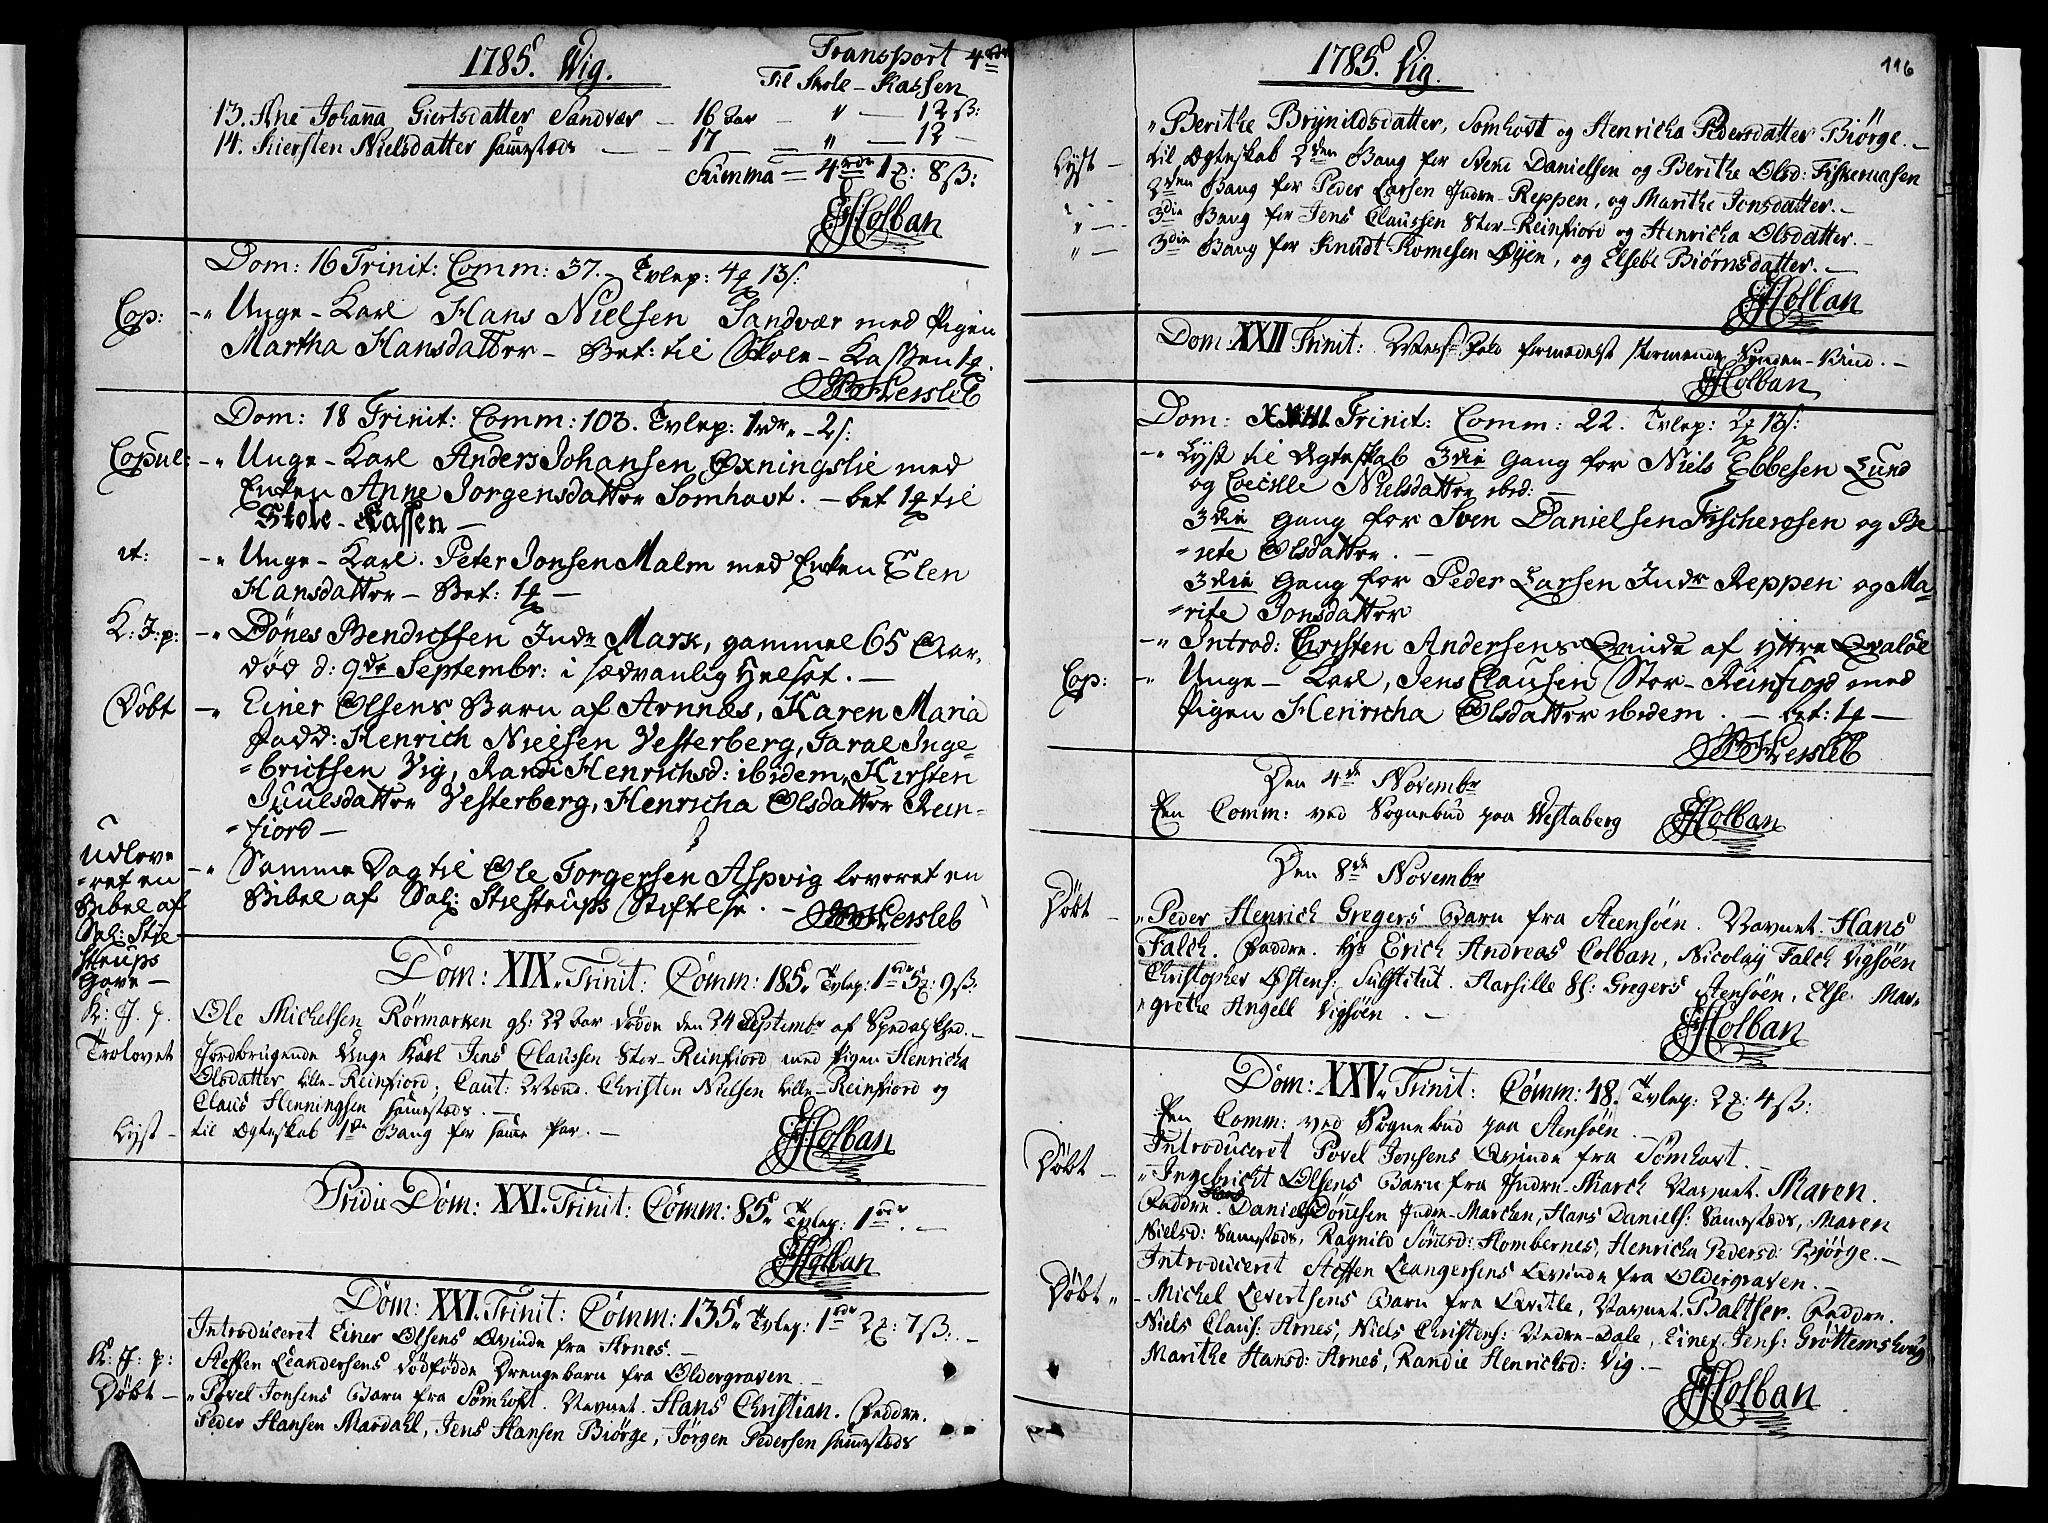 1785. Vig.
Transport 4 rdr
Til Skole-Kassen
13. Ane Johanna Giertsdatter Sandvær — 16 Aar — " — 12 ß:
14. Kiersten Nielsdatter sammesteds — 17 — " — 12 —
Summa = 4 rdr 1 : 8 ß:
EHolban
Dom: 16 Trinit: Comm: 37. — Tvlep: 4 13 s:
Cop: —" Unge-Karl Hans Nielsen Sandvær med Pigen
Martha Hansdatter — Bet: til Skole-Kassen 1
Hersleb
Dom: 18 Trinit: Comm: 103. Tvlep: 1 rdr „ - 2 s:
Copul: —" Unge-Karl Anders Johansen Øxningslie med
Enken Anne Jorgensdatter Somhavt. — bet 1 til
Skole-Kassen —
it: —" Unge-Karl. Peter Jonsen Malm med Enken Elen
Hansdatter — Bet: 1 —
K: J: p: —" Dönes Bendixsen Indr Mark, gammel 65 Aar.
død d: 9de Septembr: i sædvanlig Helsot. —
Döbt —" Einer Olsens Barn af Arnnæs, Karen Maria
Fadd: Henrich Nielsen Vesterberg, Taral Inge-
-brictsen Vig, Randi Henrichsd: ibidem, Kirsten
Juulsdatter Vesterberg, Henricha Olsdatter Rein-
-fiord —
Udleve
-ret en
Bibel af
Sal: Stie
strups
Gave —
—" Samme Dag til Ole Torgersen Aspvig leveret en
Bibel af Sal: Stiestrups Stiftelse. — Hersleb
Dom: XIX. Trinit: Comm: 185. Tvlep: 1 rdr 5 : 9 ß:
K: J: p. Ole Michelsen Rörmarken gl: 22 Aar døde den 24 Septembr af Spedalskhed. —
Trolovet Jordbrugende Unge Karl Jens Claussen Stor-Reinfiord med Pigen Henricha
Olsdatter Lille-Reinfiord; Caut: Mænd. Christen Nielsen Lille-Reinfiord og
Claus Henningsen sammesteds. —
Lyst — til Ægteskab 1ste Gang for samme Par. —
EHolban
Pridie Dom: XXI. Trinit: Comm: 85. Tvlep: 1 rdr. —
EHolban
Dom: XXI. Trinit: Comm: 135. Tvlep: 1 rdr 2 : 7 ß: —
Introduceret Einer Olsens Qvinde fra Arnes. —
K: J: p: Steffen Leandersens dödfödde Drengebarn fra Oldergraven. —
Döbt — " Povel Jonsens Barn fra Sömhoft. Navnet. Hans Christian. Faddre.
Peder Hansen Mardahl, Jens Hansen Biörge, Jörgen Pedersen sammesteds
1785. Vig.
116
" Berithe Brynildsdatter, Somhovt og Henricha Pedersdatter Biörge. —
Lyst — til Ægteskab 2den Gang for Svene Danielsen og Berithe Olsd: Fiskeraasen
2den Gang for Peder Larsen Indre-Reppen, og Marithe Jonsdatter. —
" — 3die Gang for Jens Claussen Stor-Reinfiord og Henricha Olsdatter. —
" — 3die Gang for Knudt Romesen Öyen, og Elsebe Biörnsdatter. —
EHolban
Dom: XXII Trinit: Mess-Feld formedelst stormende Synden-Vind. —
EHolban
Dom: XXIII Trinit: Comm: 22. Tvlep: 2 13 s:
—" Lyst til Ægteskab 3die Gang for Niels Ebbesen Lund
og Coecille Nielsdatter ibid: —
3die Gang for Sven Danielsen Fischerosen og Be-
-rete Olsdatter. —
3die Gang for Peder Larsen Indr Reppen og Ma-
-rite Jonsdatter
—" Introd: Christen Andersens Qvinde af Yttre Qvaløe
Cop: —" Unge-Karl, Jens Clausen Stor-Reinfiord med
Pigen Henricha Olsdatter ibidem. — bet: 1 —
Hersleb
Den 4de Novembr
Een Comm: ved Sognebud paa Westaberg EHolban
Den 8de Novembr
Döbt — " Peder Henrich Gregers Barn fra Steensöen. Navnet. Hans
Falch. Faddre. Hr Erich Andreas Colban, Nicolay Falch Vigsöen
Christopher Östens: Substitut. Karsille Sl: Gregers Stensöen, Else Mar-
-grethe Angell Vigsöen. —
EHolban
Dom: XXV. Trinit: Comm: 48. Tvlep: 2 : 4 ß:
Een Comm: ved Sognebud paa Stensöen. —
Introduceret Povel Jonsens Qvinde fra Sömhovt. —
Döbt — " Ingebricht Olsens Barn fra Indre-March Navnet. Maren.
Faddre. Daniel Dönesen Indre-Marchen, Hans Daniels: Samesteds, Maren
Nielsd: Samesteds, Ragnild Sönesd: Hombernes, Henricha Pedersd: Biörge. —
Introduceret Steffen Leangersens Qvinde fra Oldergraven. —
Döbt " — Michel Levertsens Barn fra Qvitle, Navnet. Baltser. Faddre.
Niels Claus: Arnes, Niels Christens: Nedre-Dale, Einer Jens: Gröttemshoug
Marithe Hansd: Arnes, Randie Henrichsd: Vig. —
EHolban